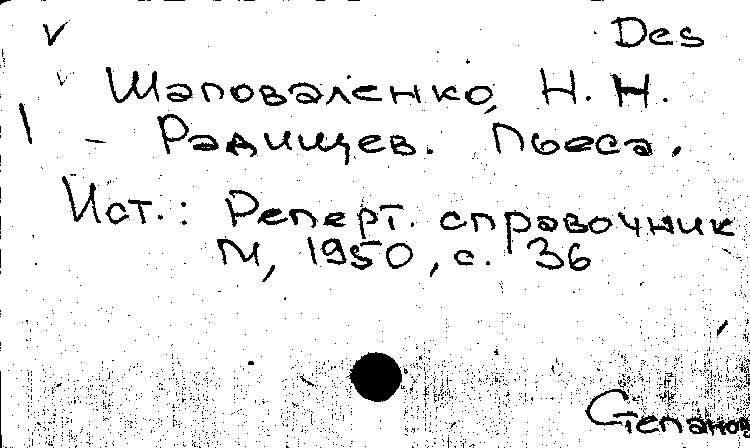 Des
Шаповаленко, Н. Н.
- Радищев. Пьеса.
Ист.: Реперт. справочник
М, 1950, с. 36
Степанов